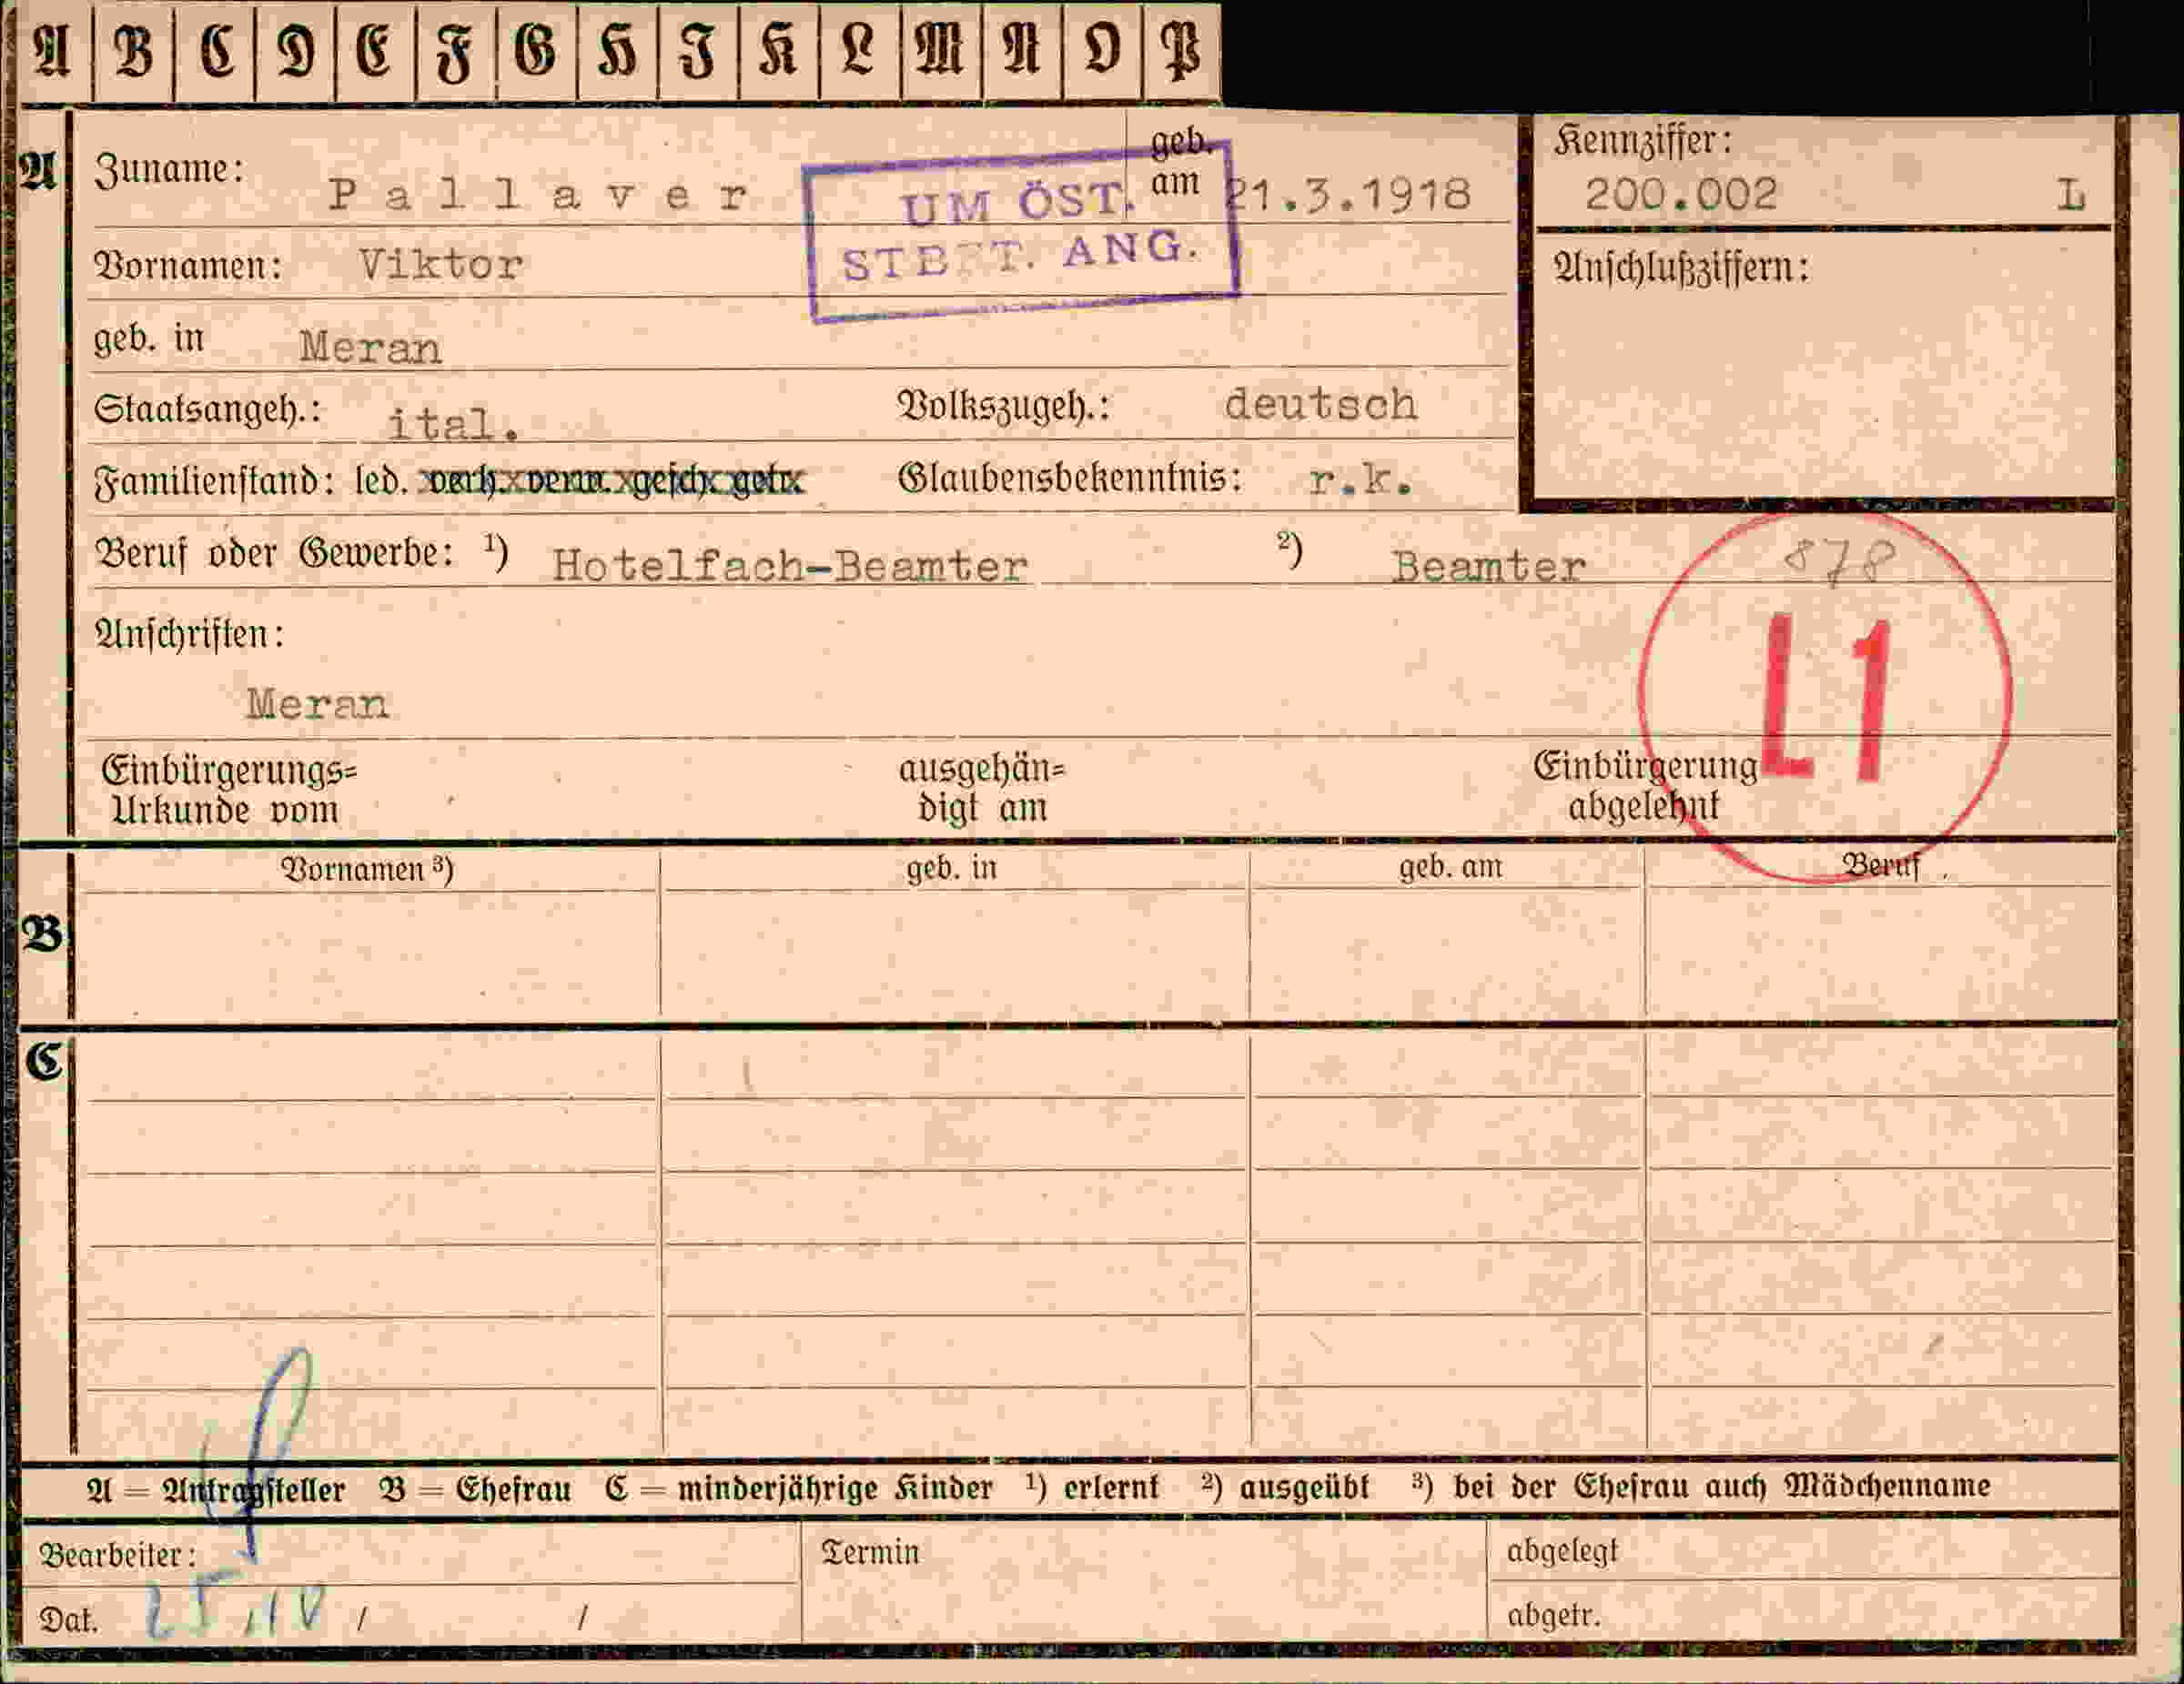 A B C D E F G H J K L M N O P
A
Zuname: Pallaver
geb. am 21.3.1918
UM ÖST.
ST ANG.
Kennziffer:
200.002 L
Vornamen: Viktor
Anschlußziffern:
geb. in Meran
Staatsangeh.: ital. Volkszugeh.: deutsch
Familienstand: led. verh. verw. gesch. getr. Glaubensbekenntnis: r.k.
Beruf oder Gewerbe: ¹) Hotelfach-Beamter ²) Beamter
878
L1
Anschriften:
Meran
Einbürgerungs=
Urkunde vom
ausgehän=
digt am
Einbürgerung
abgelehnt
Vornamen ³) geb. in geb. am Beruf
B
C
A = Antragsteller B = Ehefrau C = minderjährige Kinder ¹) erlernt ²) ausgeübt ³) bei der Ehefrau auch Mädchenname
Bearbeiter: Termin abgelegt
Dat. / / abgetr.